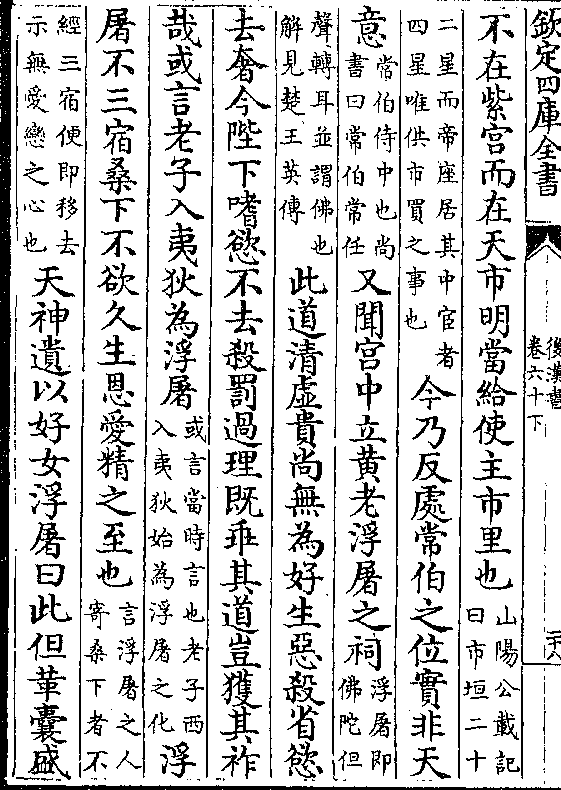 欽定四庫全書
後漢書
卷六十下
二十八
不在紫宮而在天市明當給使主市里也山陽公載記曰市垣二十
二星而帝座居其中宦者四星唯供市買之事也今乃反處常伯之位實非天
意常伯侍中也尚書曰常伯常任又聞宮中立黃老浮屠之祠浮屠即佛陀但
聲轉耳並謂佛也解見楚王英傳此道清虛貴尚無為好生惡殺省慾
去奢今陛下嗜慾不去殺罰過理既乖其道豈獲其祚
哉或言老子入夷狄為浮屠或言當時言也老子西入夷狄始為浮屠之化浮
屠不三宿桑下不欲久生恩愛精之至也言浮屠之人寄桑下者不
經三宿便即移去示無愛戀之心也天神遺以好女浮屠曰此但革囊盛